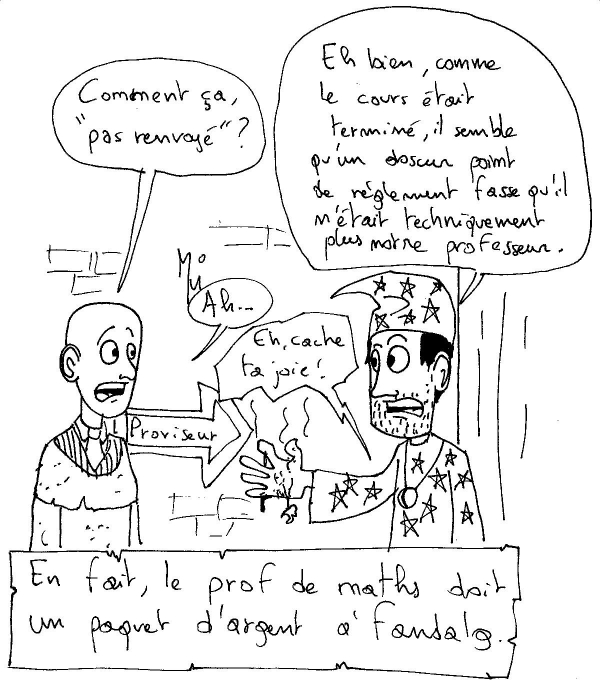 Comment ça,
"pas renvoyé"?
Eh bien, comme
le cours était
terminé, il semble
qu'un obscur point
de règlement fasse qu'il
n'était techniquement
plus notre professeur.
Ah...
Eh, cache
ta joie!
Proviseur
En fait, le prof de maths doit
un paquet d'argent à Fansalg.